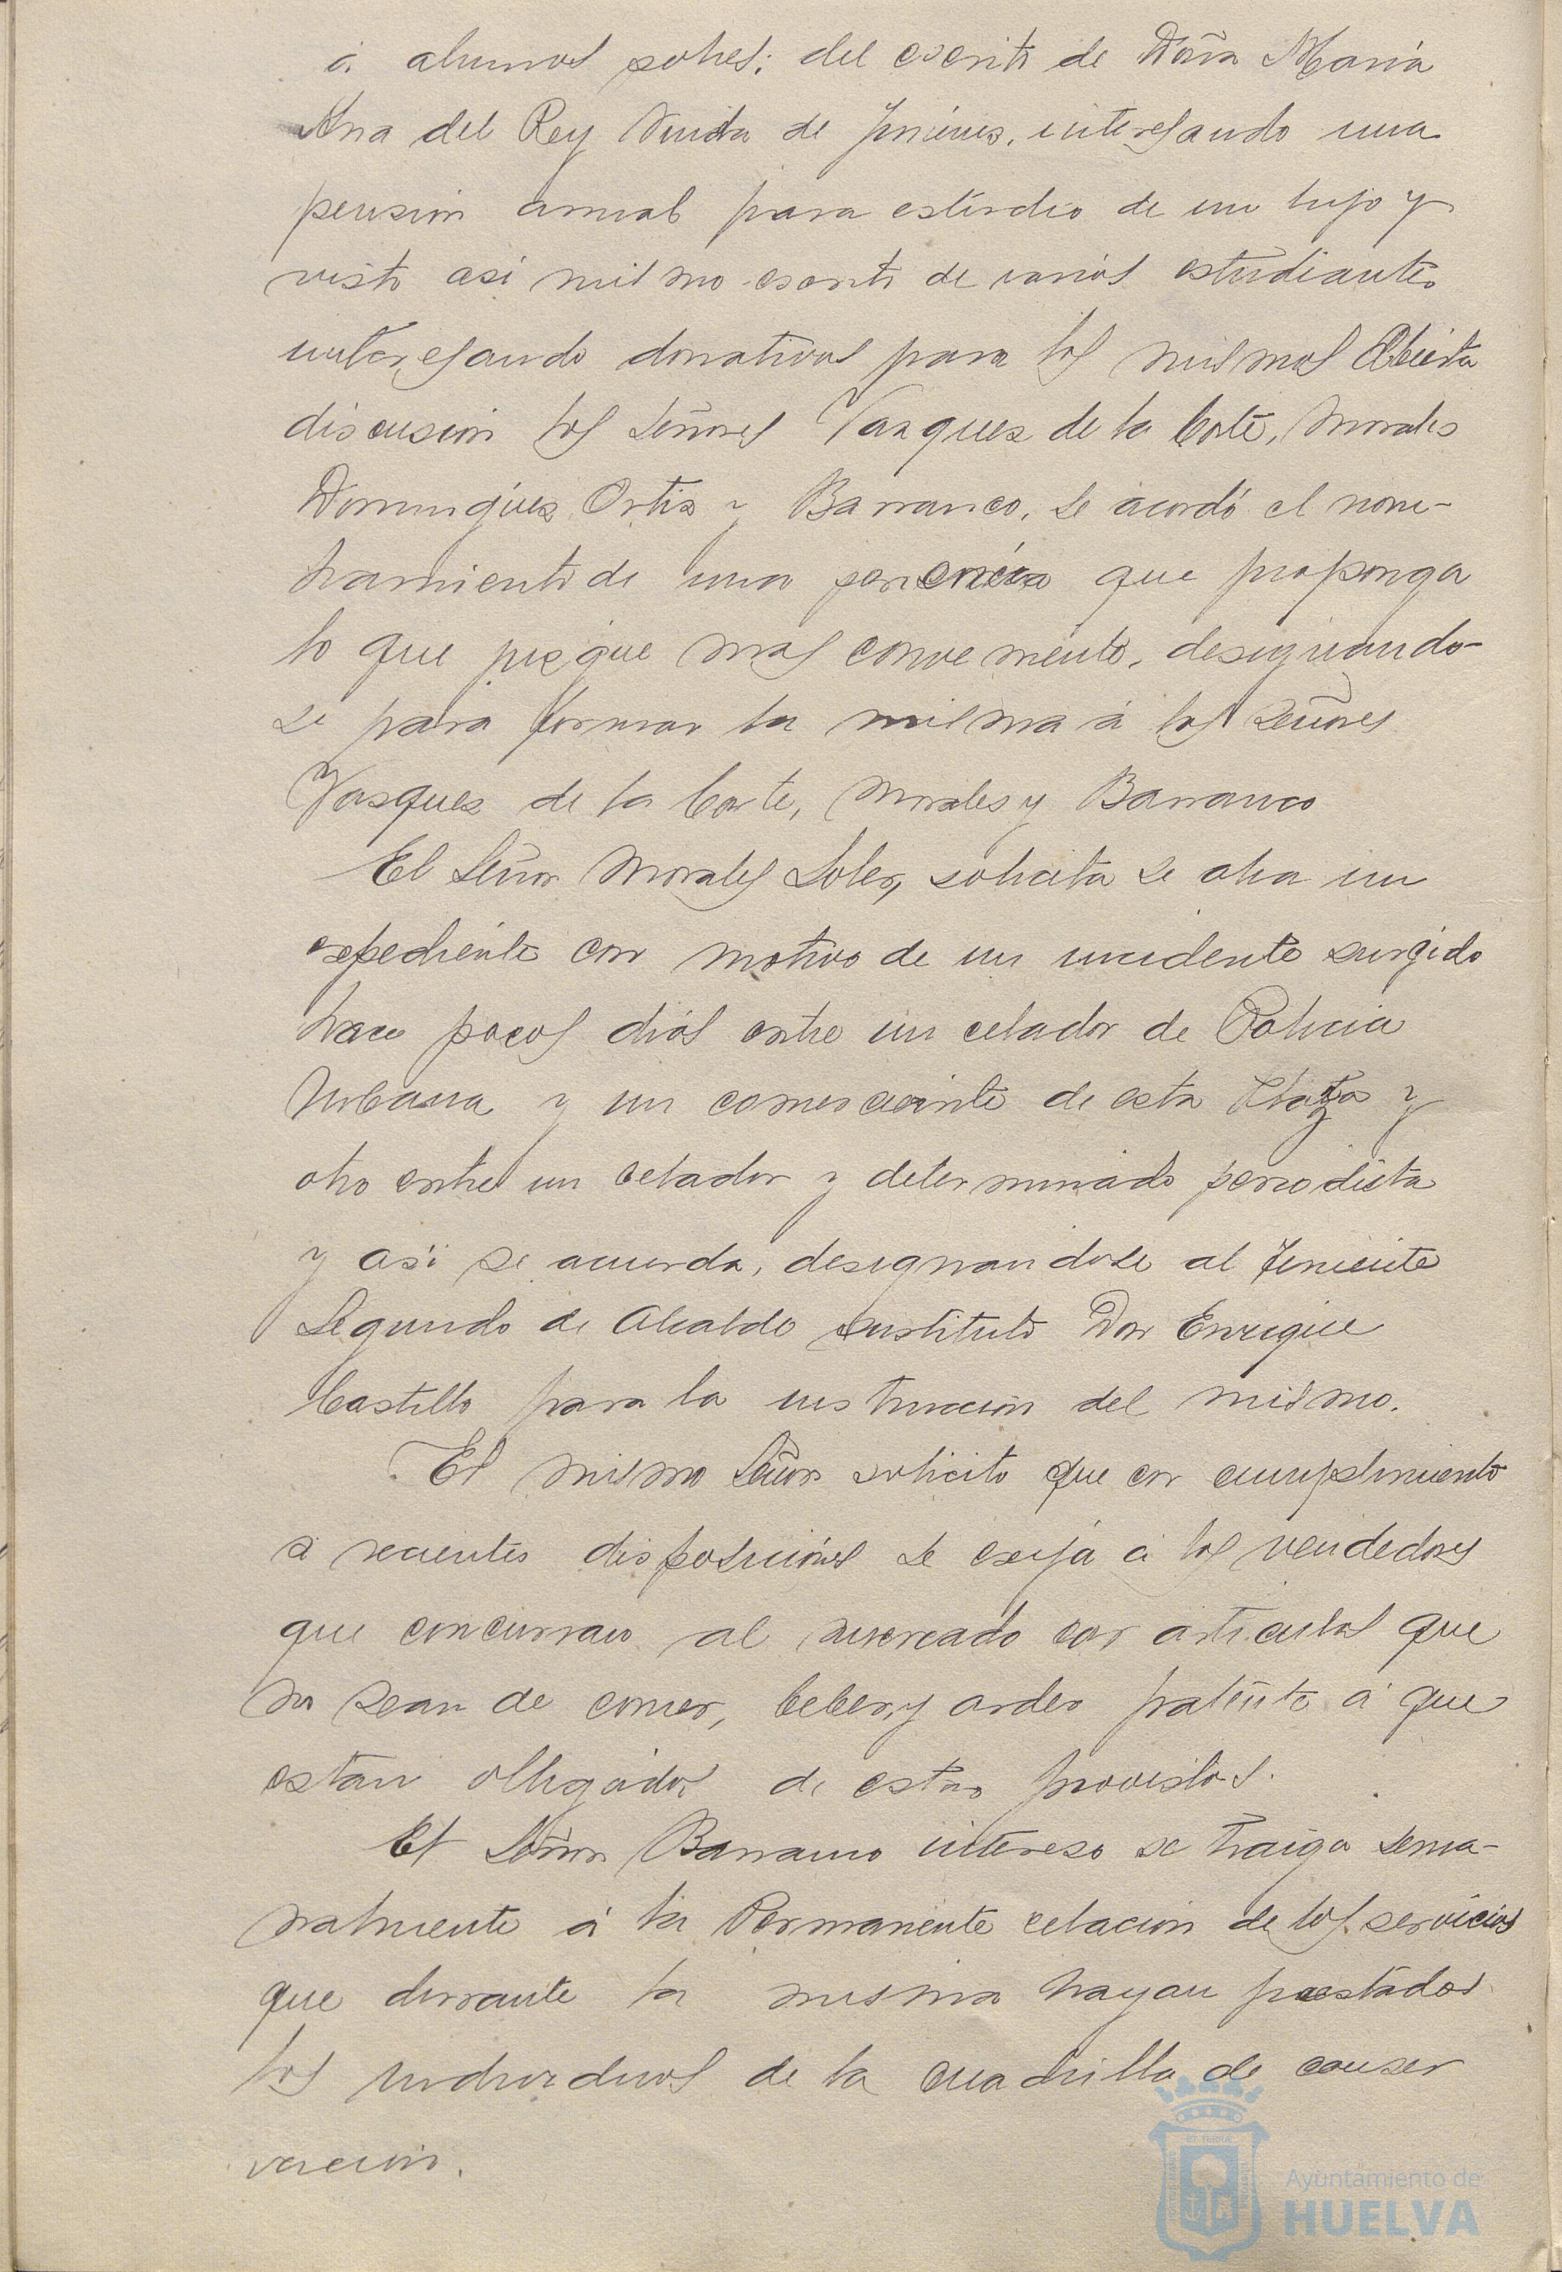 á alumnos pobres; del escrito de Doña María
Ana del Rey Viuda de Jimenez, interesando una
pensión anual para estudio de un hijo y
visto asi mismo escrito de varios estudiantes
interesando donativos para los mismos Abierta
discusión los Señores Vazquez de la Corte, Morales
Dominguez Ortiz y Barranco, se acordó el nom-
bramiento de una ponencia que proponga
lo que juzgue mas conveniente, designando-
se para formar la misma á los Señores
Vasquez de la Corte, Morales y Barranco
El Señor Morales Soler, solicita se abra un
expediente con motivo de un incidente surgido
hace pocos diás entre un celador de Policia
Urbana y un comerciante de esta Plaza y
otro entre un celador y determinado periodista
y asi se acuerda, designandose al Teniente
Segundo de Alcalde sustituto Don Enrique
Castillo para la instrucción del mismo.
El mismo Señor solicito que en cumplimiento
a recientes disposiciónes se exija á los vendedores
que concurran al mercado con articulos que
no sean de comer, beber, y arder patente á que
estan obligados de estar provistos.
El Señor Barranco intereso se traiga sema-
nalmente á la Permanente relacion de los servicios
que durante la misma hayan prestados
los individuos de la cuadrilla de conser
vacion.
Ayuntamiento de
HUELVA